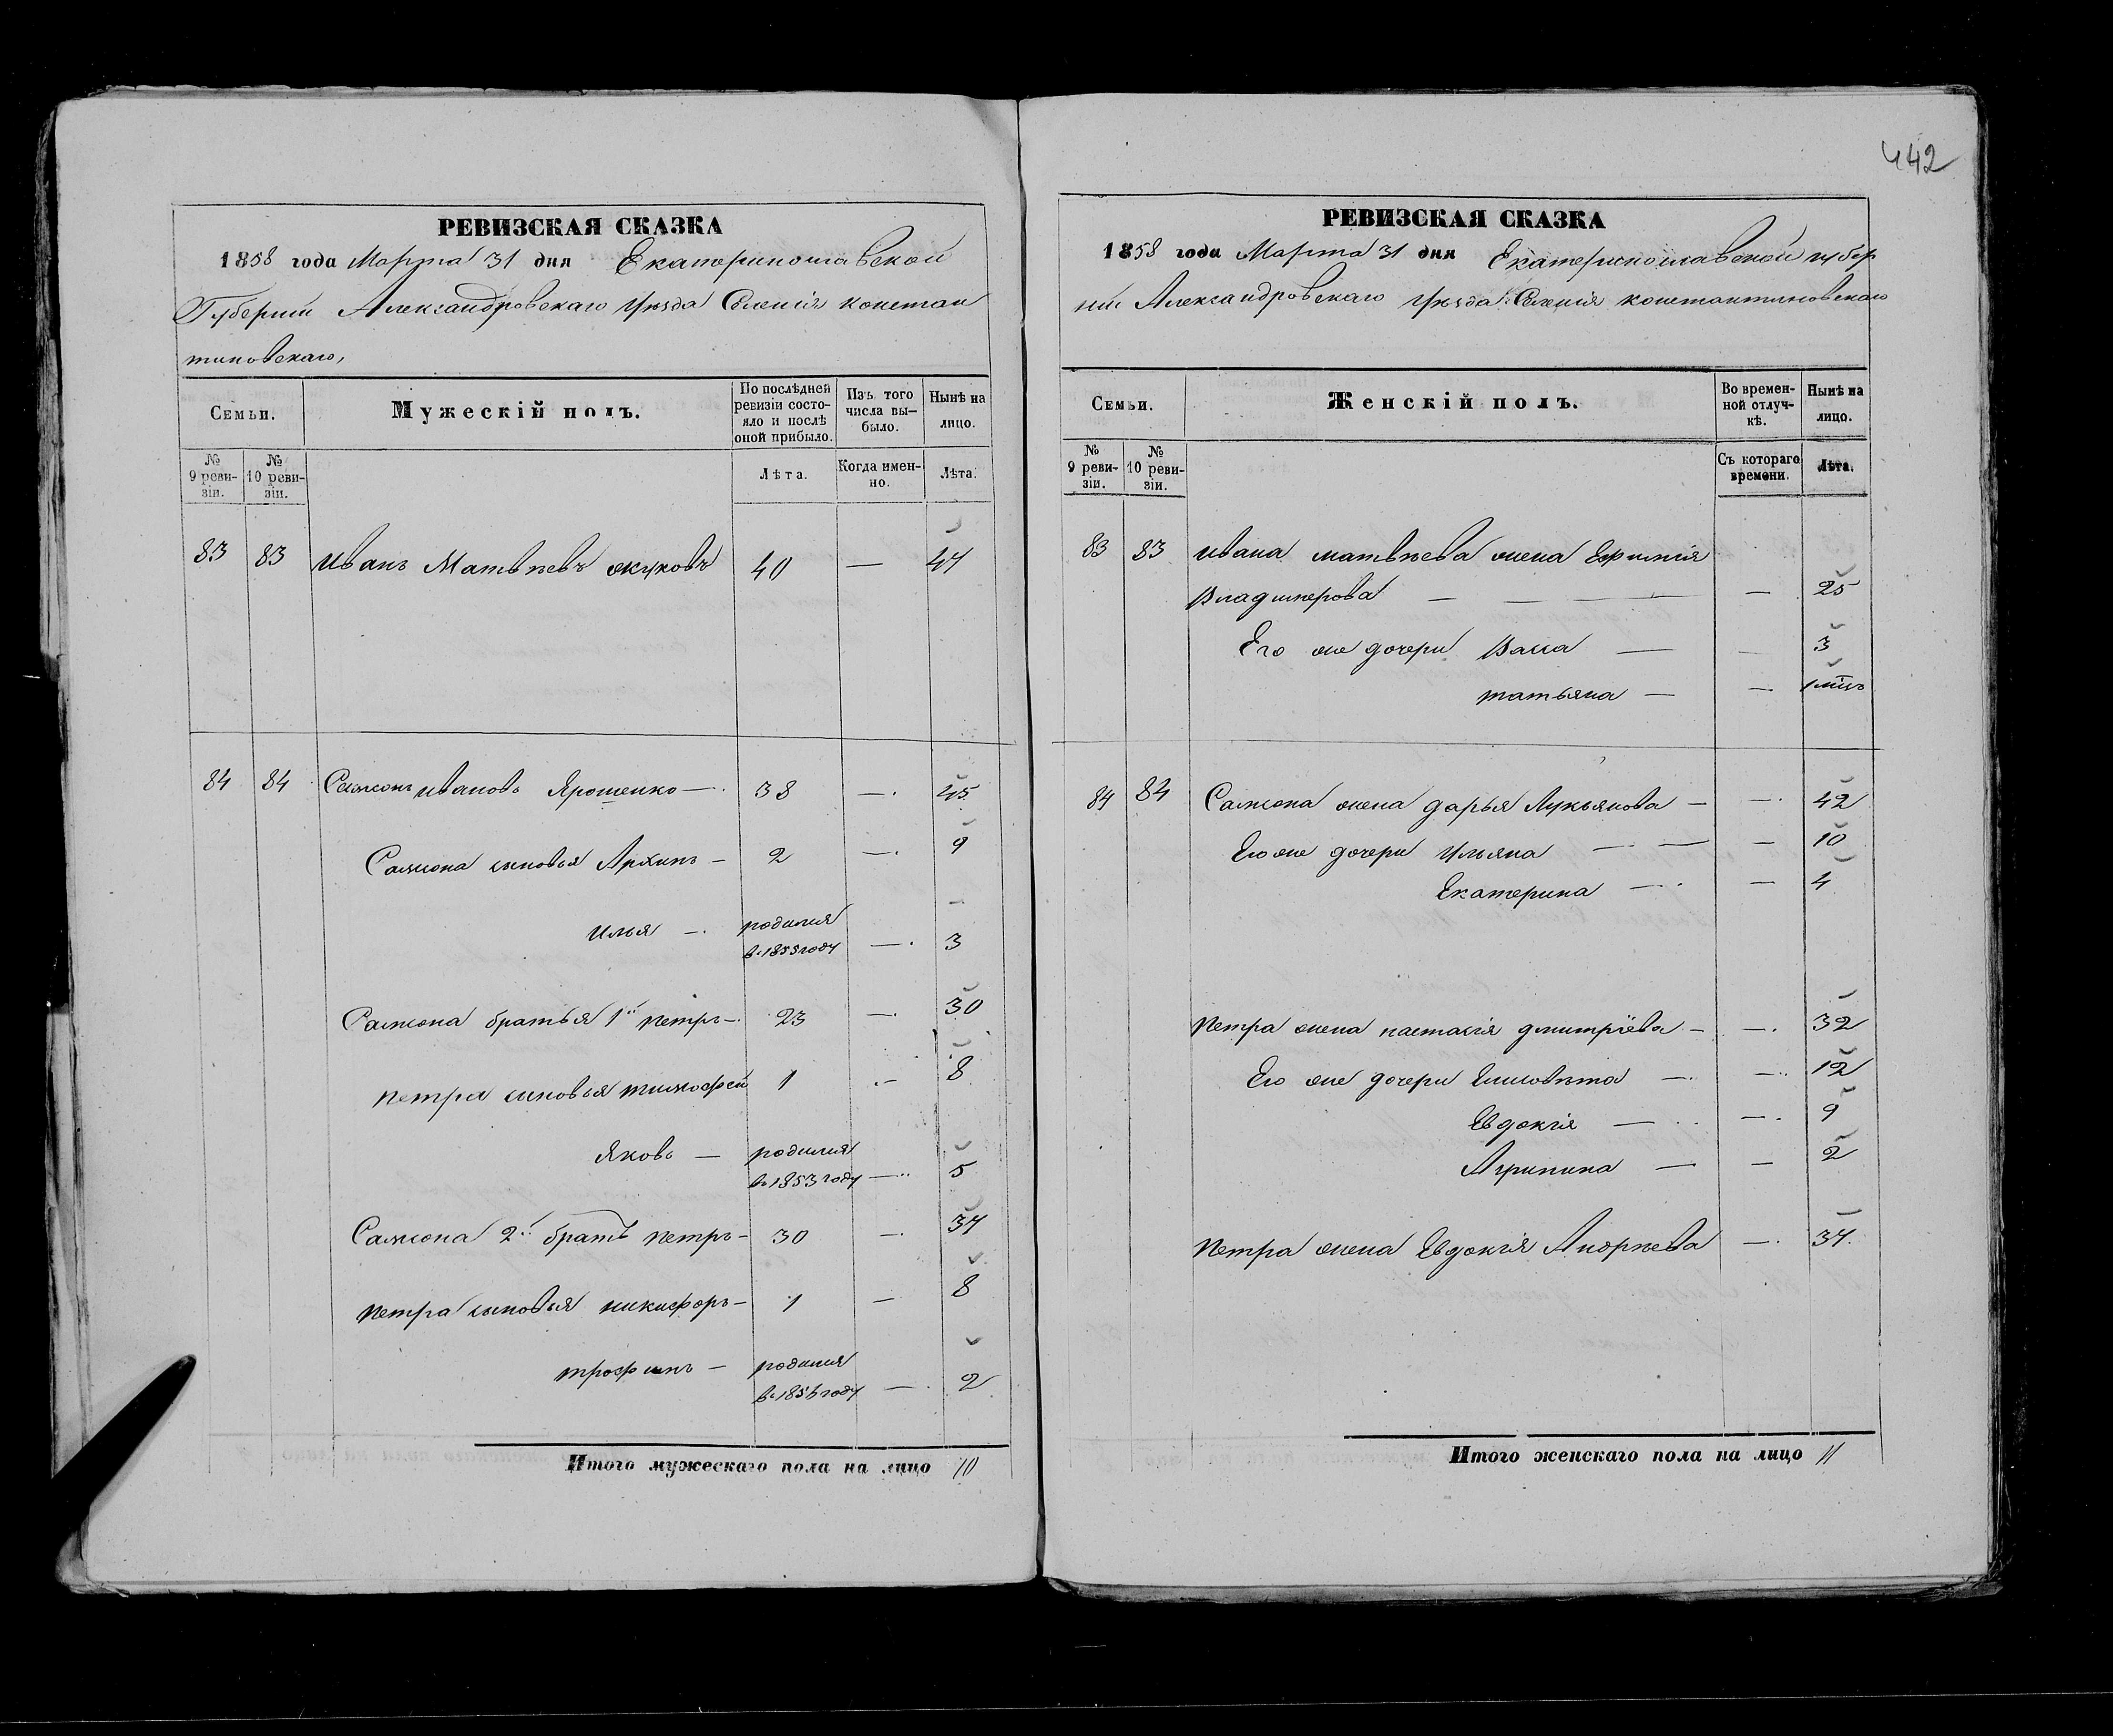 442
РЕВИЗСКАЯ СКАЗКА
1858 года Марта 31 дня Екатеринославской
Губернии Александровскаго Уѣзда Селенія констан
тиновскаго,
Семьи.
Мужескій полъ.
По послѣдней ревизіи состояло и послѣ оной прибыло.
Изъ того числа выбыло.
Нынѣ на лицо.
№ 9 ревизіи.
№ 10 ревизіи.
Лѣта.
Когда именно.
Лѣта.
83 83 Иванъ Матвѣевъ 40 — 47
84 84 Самсонъ Ивановъ Ярошенко — 38 — 45
Самсона сыновья Архипъ — 2 — 9
Илья — родился
в 1855 году — 3
Самсона братья 1й петръ — 23 — 30
петра сыновья тимофей 1 — 8
Яковъ — родился
в 1853 году — 5
Самсона 2й братъ петръ — 30 — 37
петра сыновья никифоръ — 1 — 8
трофимъ — родился
в 1856 году — 2
Итого мужескаго пола на лицо 10
РЕВИЗСКАЯ СКАЗКА
1858 года Марта 31 дня Екатеринославской губер
ніи Александровскаго Уѣзда Селенія константиновскаго
Семьи.
Женскій полъ.
Во временной отлучкѣ.
Нынѣ на лицо.
№ 9 ревизіи.
№ 10 ревизіи.
Съ котораго времени.
Лѣта.
83 83 Ивана матвѣева жена Ефимія
Владимерова — — — — 25
Его же дочери Васса — — 3
татьяна — — 1 мцъ
84 84 Самсона жена дарья Лукьянова — — 42
Его же дочери Ульяна — — — 10
Екатерина — — 4
Петра жена настасія дмитріева — — 32
Его же дочери Елисовѣта — — 12
Евдокія — — 9
Агрипина — — 2
Петра жена Евдокія Андрѣева — 37
Итого женскаго пола на лицо 11